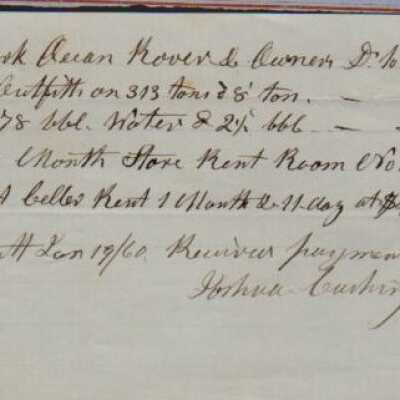 ark Ocean Rover & Owners Dr to
Outfitts on 313 tons @ 8¢ ton. —
78 bbl. Water @ 2½ bbl — —
Month Store Rent Room No
Celler Rent 1 Month & 11 day at $
Jan 19/60 Received paymen
Joshua Cushin